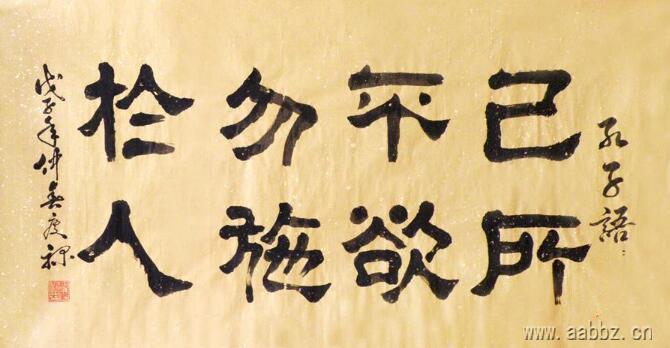 孔子語：
己所
不欲
勿施
於人
戊子年仲
www.aabbz.cn